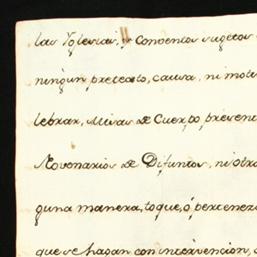 las Yglesias, y Conventos sugetos
ningun pretexto, causa, ni moti
lebrar, Misas de Cuerpo presen
Novenarios de Difuntos, ni otro
guna manera, toque, ó pertenez
que se hagan con intervencion,